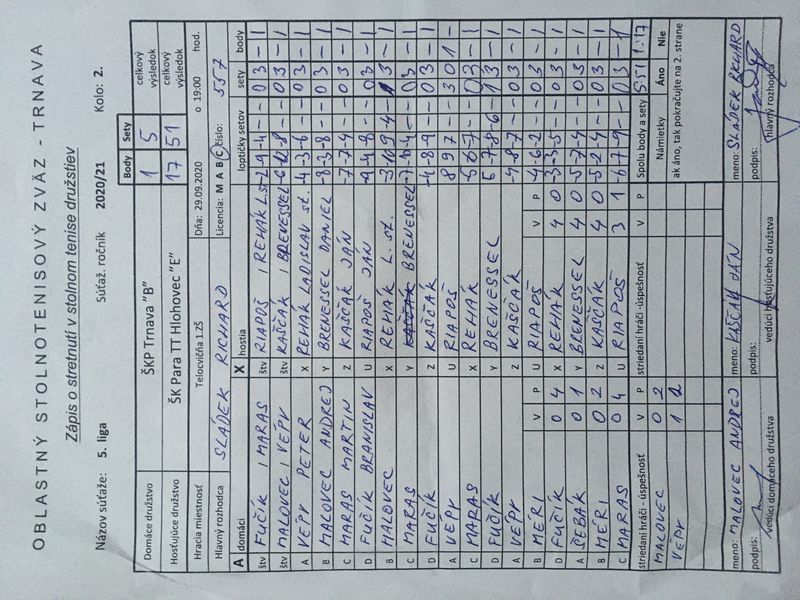 OBLASTNÝ STOLNOTENISOVÝ ZVÄZ - TRNAVA
Zápis o stretnutí v stolnom tenise družstiev
Názov súťaže: 5. liga Súťaž. ročník 2020/21 Kolo: 2.
Body Sety
Domáce družstvo ŠKP Trnava "B" 1 5 celkový výsledok
Hosťujúce družstvo ŠK Para TT Hlohovec "E" 17 51 celkový výsledok
Hracia miestnosť Telocvičňa 1.ZŠ Dňa: 29.09.2020 o 19:00 hod.
Hlavný rozhodca SLÁDEK RICHARD Licencia: M A B C číslo: 557
A domáci X hostia loptičky setov sety body
štv FUČÍK / MARAS štv RIAPOŠ / REHÁK L.st. -2 -9 -4 - - 0 3 - 1
štv MALOVEC / VÉPY štv KAŠČÁK / BRENESSEL -6 12 -8 03 - 1
A VÉPY PETER X REHÁK LADISLAV st. -4 -3 -6 - - 03 - 1
B MALOVEC ANDREJ Y BRENESSEL DANIEL -8 -3 -8 - - 03 - 1
C MARAS MARTIN Z KAŠČÁK JÁN -7 -7 -4 - - 03 - 1
D FUČÍK BRANISLAV U RIAPOŠ JÁN - - 03 - 1
B MALOVEC X REHÁK L. st. -3 10 9 -4 - 13 - 1
C MARAS Y BRENESSEL - - 03 - 1
D FUČÍK Z KAŠČÁK -4 -8 -9 - - 03 - 1
A VÉPY U RIAPOŠ 8 9 7 - - 3 0 1 -
C MARAS X REHÁK - - 03 - 1
D FUČÍK Y BRENESSEL 6 -7 -8 -6 - 13 - 1
A VÉPY Z KAŠČÁK -4 -8 -7 - - 03 - 1
B MÉRI V P U RIAPOŠ V P -4 -6 -2 - - 03 - 1
D FUČÍK 0 4 X REHÁK 4 0 -3 -3 -5 - - 03 - 1
A ŠEBÁK 0 1 Y BRENESSEL 4 0 -5 -7 -4 - - 03 - 1
B MÉRI 0 2 Z KAŠČÁK 4 0 -5 -2 -4 - - 03 - 1
C MARAS 0 4 U RIAPOŠ 3 1 -6 -7 -9 - - 03 - 1
striedaní hráči - úspešnosť V P striedaní hráči -úspešnosť V P Spolu body a sety 5:51 1:17
MALOVEC 0 2 Námietky Áno Nie
VÉPY 1 2 ak áno, tak pokračujte na 2. strane
meno: MALOVEC ANDREJ meno: KAŠČÁK JÁN meno: SLÁDEK RICHARD
podpis: podpis: podpis:
vedúci domáceho družstva vedúci hosťujúceho družstva hlavný rozhodca